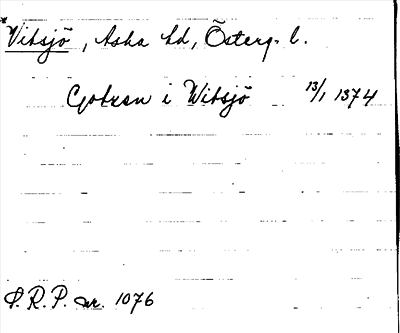 *Vitsjö, Aska hd, Österg. l.
Gotran i Witsjö 13/1 1374
S.R.P. nr. 1076